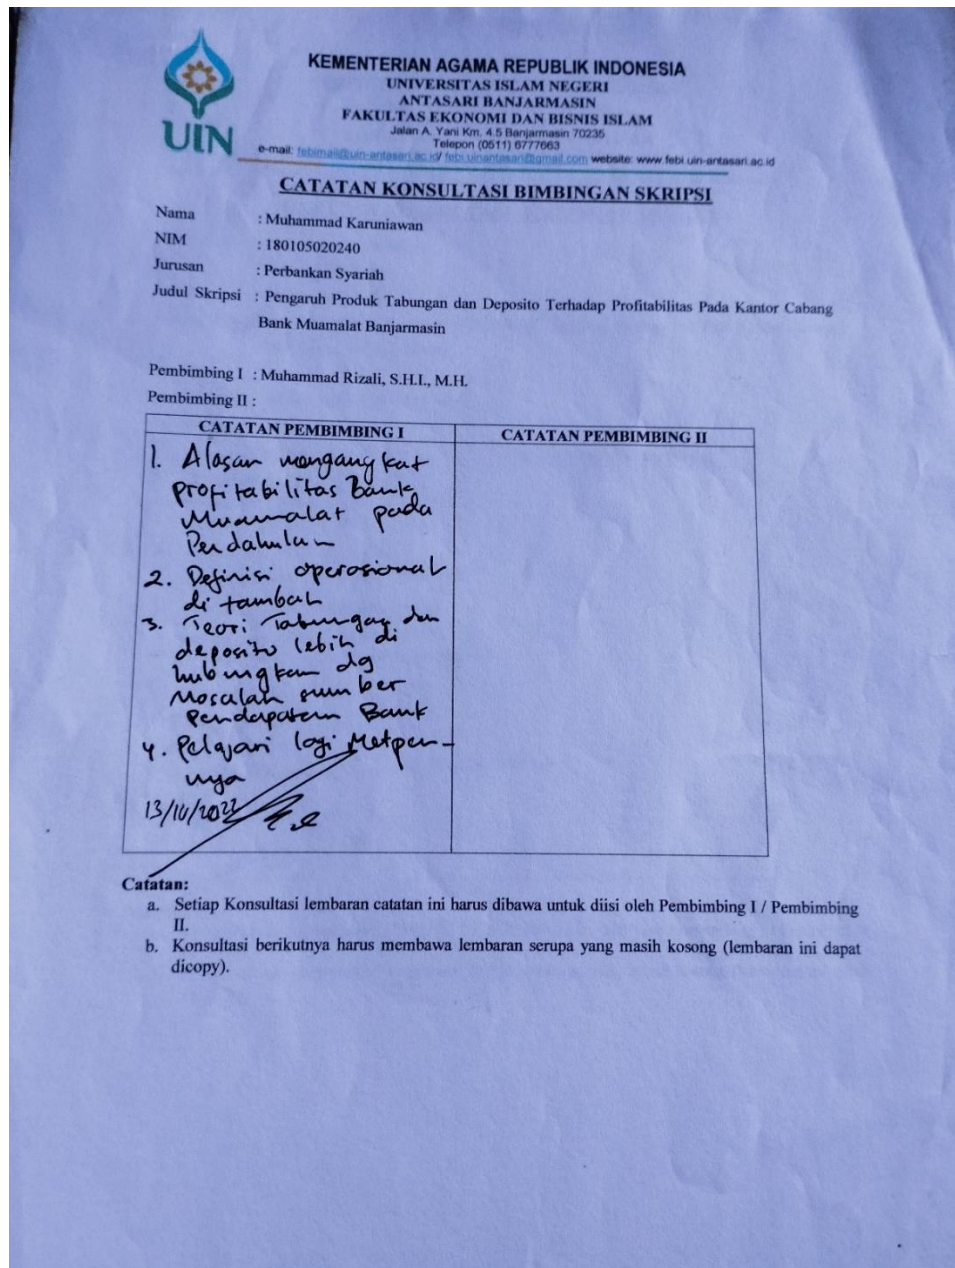 KEMENTERIAN AGAMA REPUBLIK INDONESIA
UNIVERSITAS ISLAM NEGERI
ANTASARI BANJARMASIN
FAKULTAS EKONOMI DAN BISNIS ISLAM
Jalan A. Yani Km. 4.5 Banjarmasin 70235
Telepon (0511) 6777663
UIN
e-mail: febimail@uin-antasari.ac.id/ febi.uinantasari@gmail.com website: www.febi.uin-antasari.ac.id
CATATAN KONSULTASI BIMBINGAN SKRIPSI
Nama : Muhammad Karuniawan
NIM : 180105020240
Jurusan : Perbankan Syariah
Judul Skripsi : Pengaruh Produk Tabungan dan Deposito Terhadap Profitabilitas Pada Kantor Cabang
Bank Muamalat Banjarmasin
Pembimbing I : Muhammad Rizali, S.H.I., M.H.
Pembimbing II :
CATATAN PEMBIMBING I
1. Alasan mengangkat
profitabilitas Bank
Muamalat pada
Pendahulan
2. Definisi operasional
di tambah
3. Teori Tabungan dan
deposito lebih di
hubungkan dg
Masalah sumber
Pendapatan Bank
4. Pelajari lagi Metpen-
nya
CATATAN PEMBIMBING II
Catatan:
a. Setiap Konsultasi lembaran catatan ini harus dibawa untuk diisi oleh Pembimbing I / Pembimbing
II.
b. Konsultasi berikutnya harus membawa lembaran serupa yang masih kosong (lembaran ini dapat
dicopy).